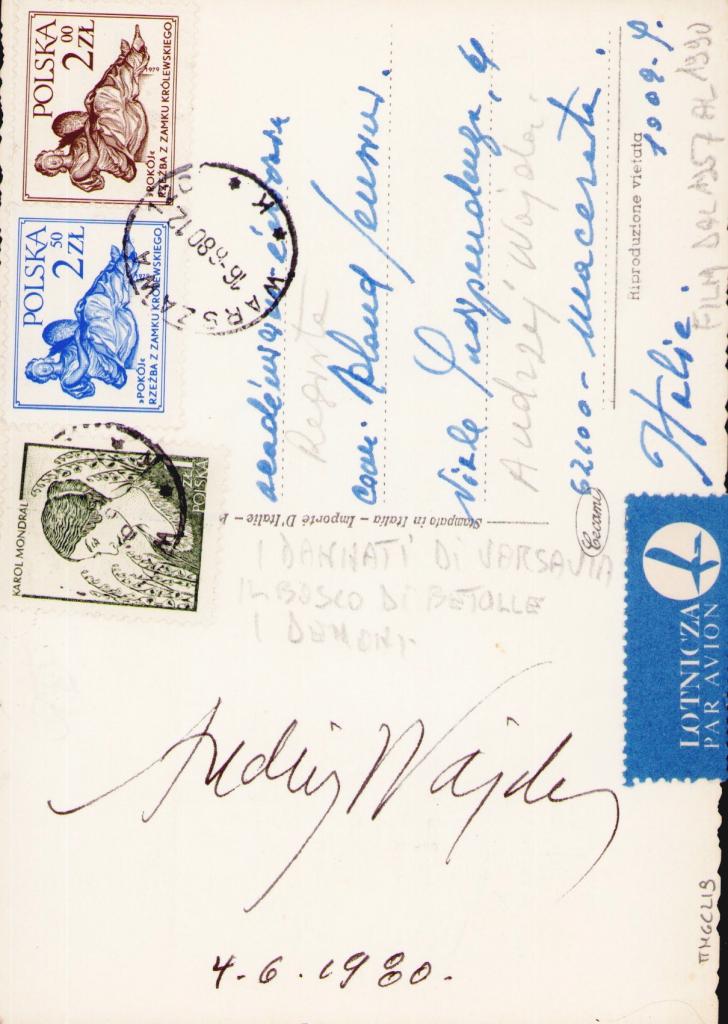 POLSKA
2 00 ZŁ
1979
»POKÓJ«
RZEŹBA Z ZAMKU KRÓLEWSKIEGO
POLSKA
2 50 ZŁ
1979
»POKÓJ«
RZEŹBA Z ZAMKU KRÓLEWSKIEGO
KAROL MONDRAL
ZŁ
POLSKA
WARSZAWA
16-6.80.12
Regista
Viale
Andrzej Wajda
62100 - Macerata.
Italie.
1909-9.
Riproduzione vietata
FILM DAL 1957 AL 1990
Stampato in Italia - Importé D'Italie - P
Cecami
I DANNATI DI VARSAVIA
IL BOSCO DI BETULLE
I DEMONI
LOTNICZA
PAR AVION
Andrzej Wajda
4.6.1980.